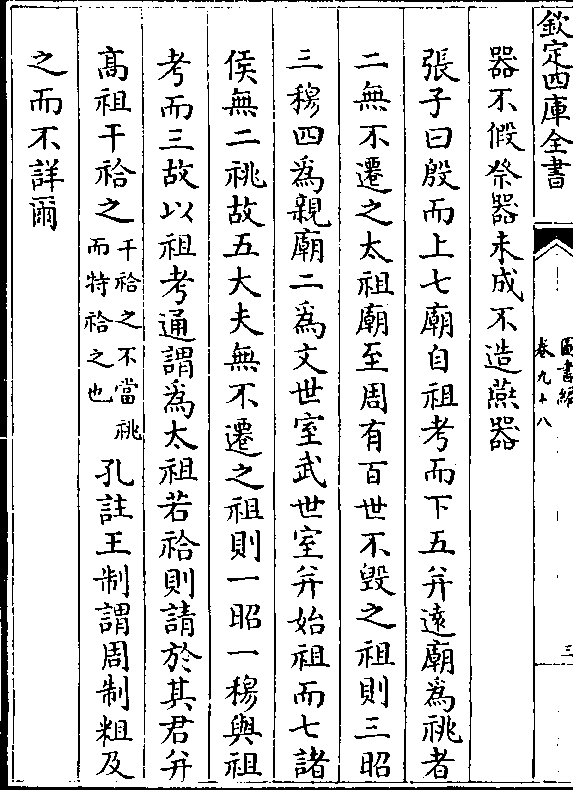 欽定四庫全書
圖書編
卷九十八
三
器不假祭器未成不造燕器
張子曰殷而上七廟自祖考而下五并遠廟為祧者
二無不遷之太祖廟至周有百世不毀之祖則三昭
三穆四為親廟二為文世室武世室并始祖而七諸
侯無二祧故五大夫無不遷之祖則一昭一穆與祖
考而三故以祖考通謂為太祖若祫則請於其君并
高祖干祫之干祫之不當祧而特祫之也孔註王制謂周制粗及
之而不詳爾